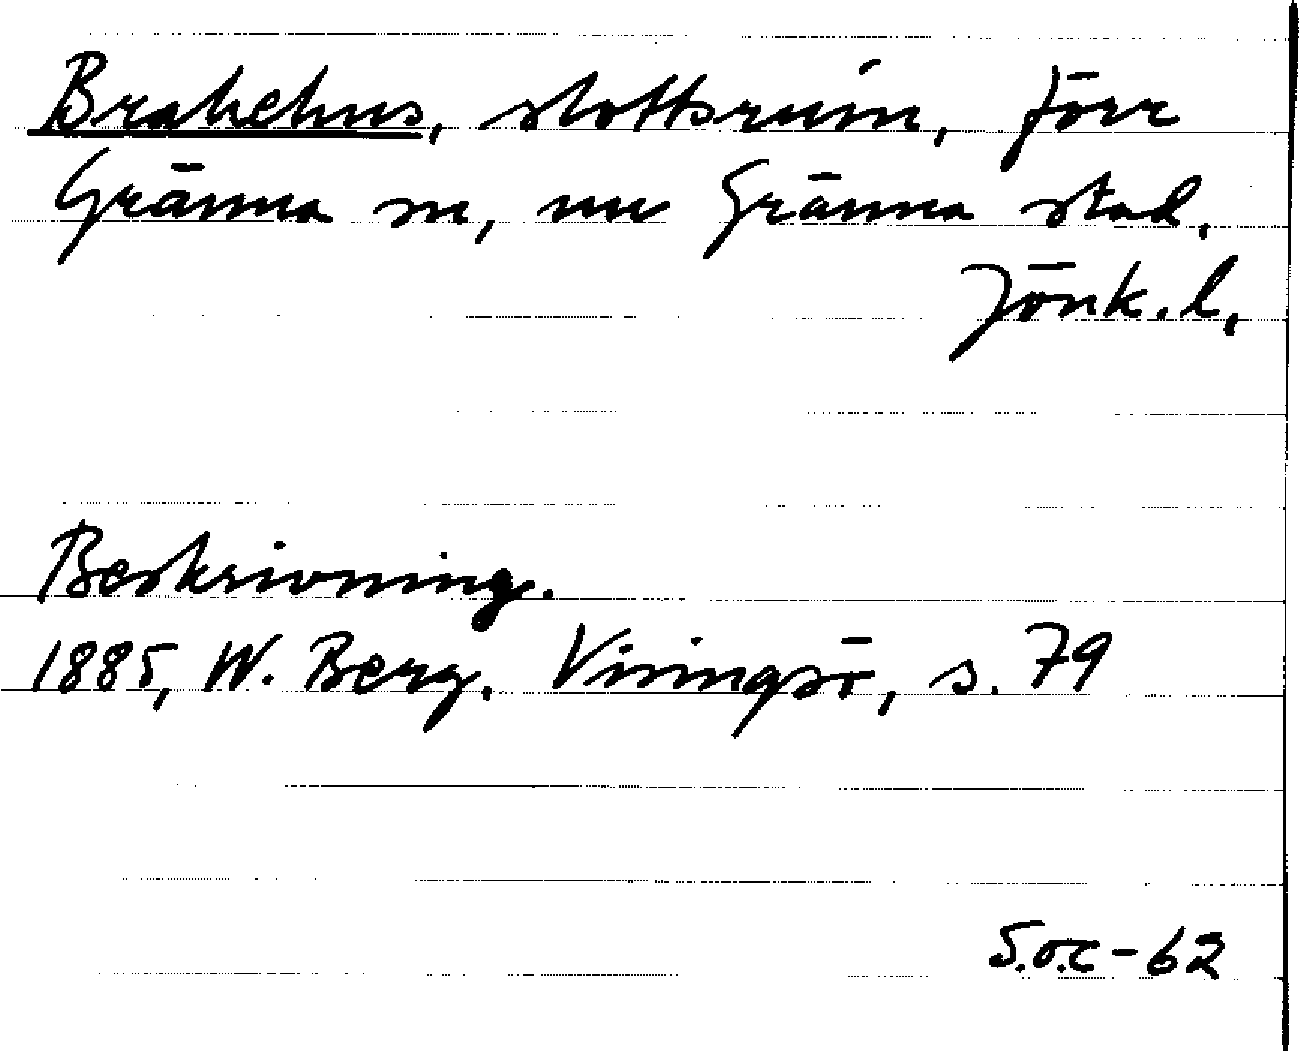 Brahehus, slottsruin, förr
Gränna sn, nu Gränna stad,
Jönk. l.
Beskrivning.
1885, W. Berg. Visingsö, s. 79
S.o.c-62